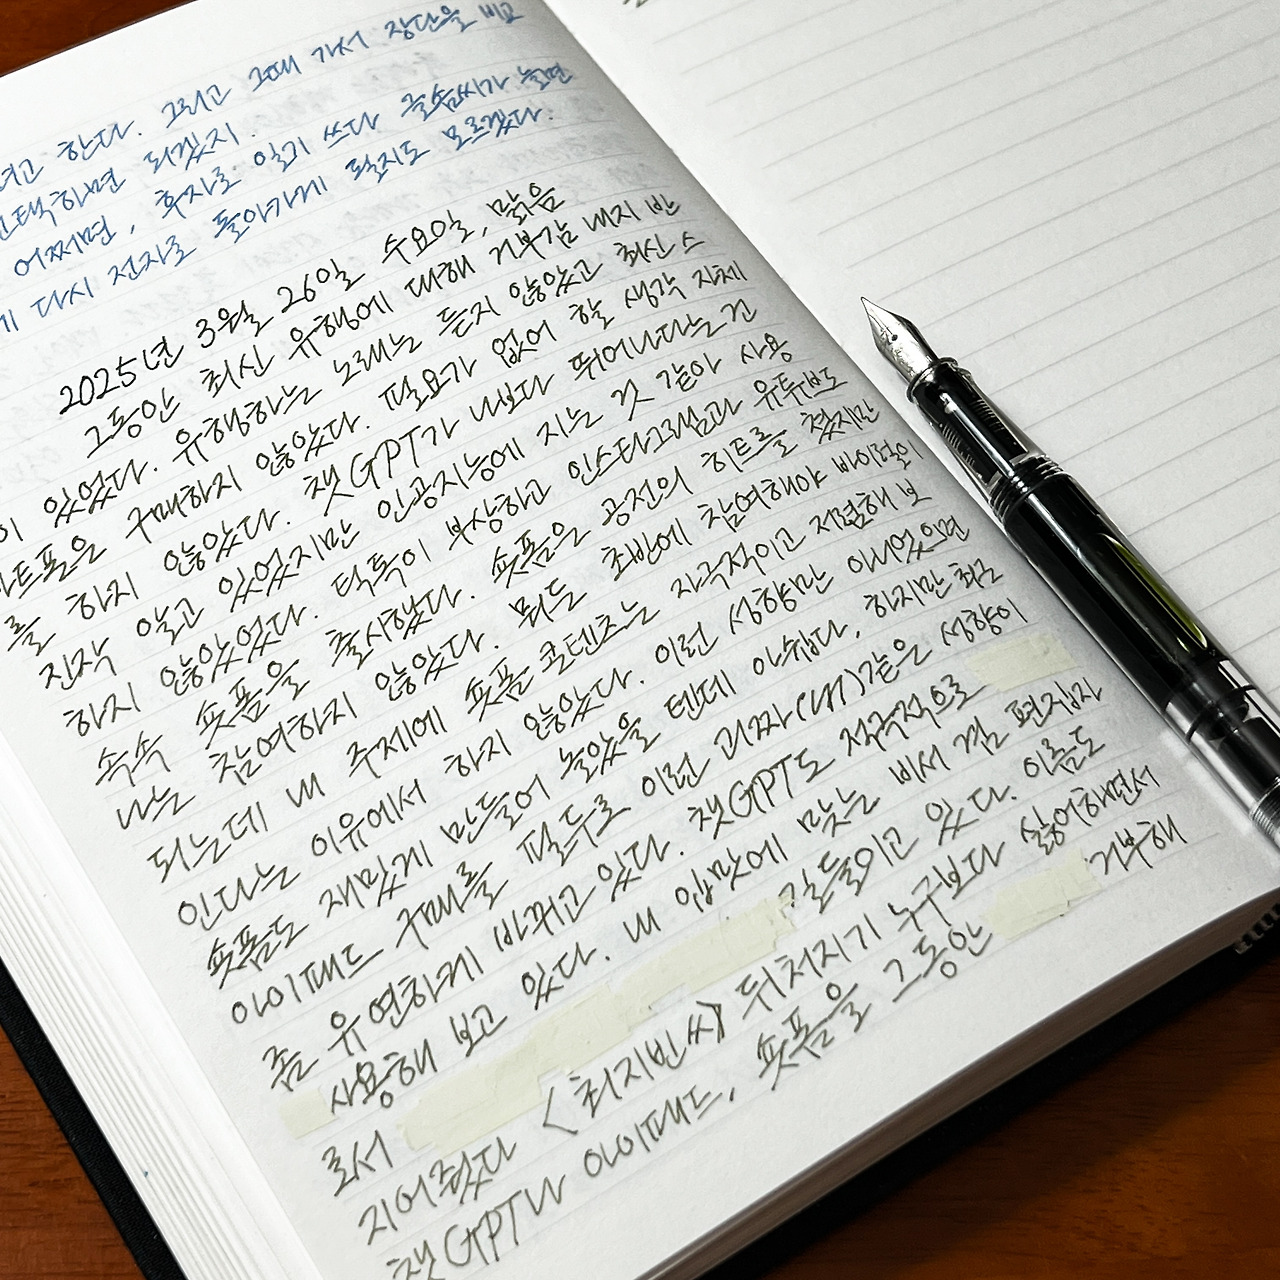 려고 한다. 그리고 그때 가서 장단을 비교
선택하면 되겠지.
어쩌면, 후자로 일기 쓰다 글솜씨가 늘면
다시 전자로 돌아가게 될지도 모르겠다.
2025년 3월 26일 수요일, 맑음
그동안 최신 유행에 대해 거부감 내지 반
이 있었다. 유행하는 노래는 듣지 않았고 최신 스
마트폰을 구매하지 않았다. 필요가 없어 할 생각 자체
를 하지 않았다. 챗GPT가 나보다 뛰어나다는 건
진작 알고 있었지만 인공지능에 지는 것 같아 사용
하지 않았었다. 틱톡이 부상하고 인스타그램과 유튜브도
속속 숏폼을 출시했다. 숏폼은 공전의 히트를 쳤지만
나는 참여하지 않았다. 뭐든 초반에 참여해야 바이럴이
되는데 내 주제에 숏폼 콘텐츠는 자극적이고 저렴해 보
인다는 이유에서 하지 않았다. 이런 성향만 아니었으면
숏폼도 재밌게 만들어 놓았을 텐데 아쉽다. 하지만 최근
아이패드 구매를 필두로 이런 괴짜(내)같은 성향이
좀 유연하게 바뀌고 있다. 챗GPT도 적극적으로
사용해 보고 있다. 내 입맛에 맞는 비서 겸 편집자
로서 길들이고 있다. 이름도
지어줬다 <최지빈 씨> 뒤처지기 누구보다 싫어하면서
챗GPT나 아이패드, 숏폼을 그동안 거부해